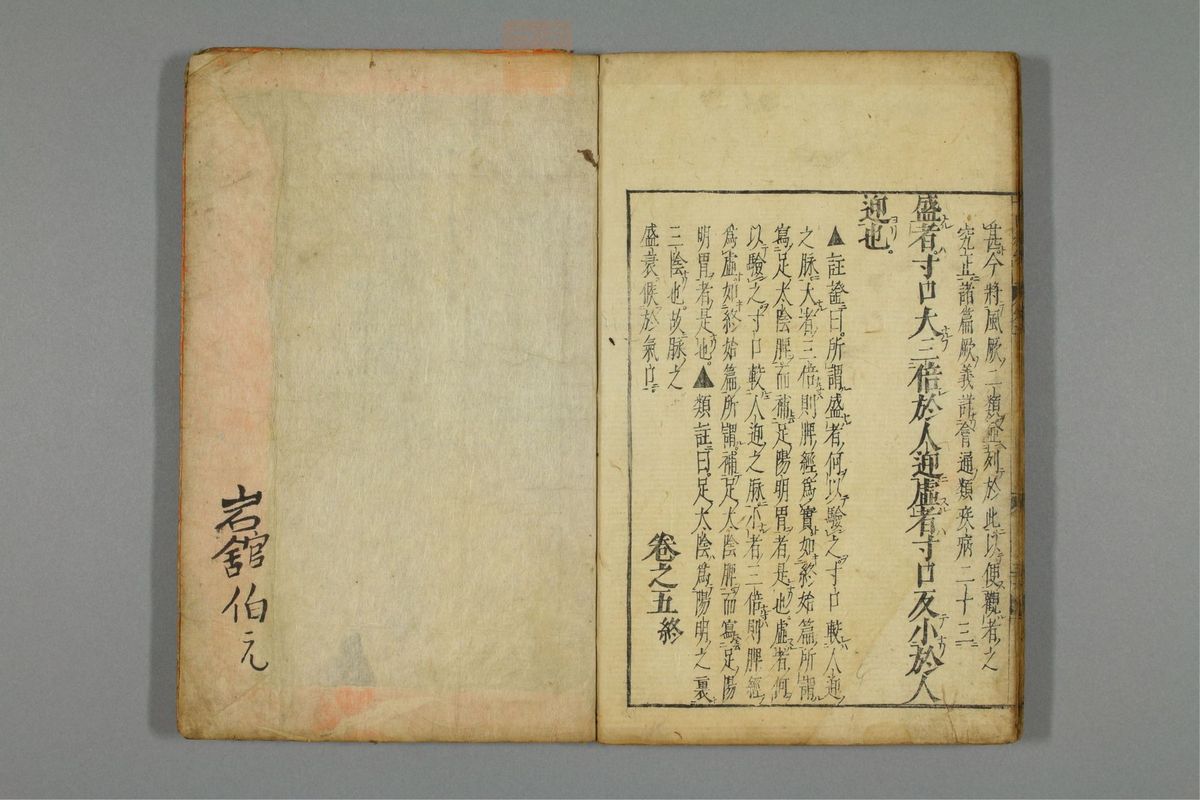 甚今將風厥二類並列於此以便觀者之
究正諸篇厥義詳會通類疾病二十三
盛者寸口大三倍於人迎虛者寸口反小於人
迎也。
▲註證曰。所謂盛者何以驗之寸口較人迎
之脉大者三倍則脾經爲實如終始篇所謂
寫足太陰脾而補足陽明胃者是也虛者何
以驗之。寸口較人迎之脉小者三倍則脾經
爲虛如終始篇所謂。補足太陰脾而寫足陽
明胃者是也。▲類註曰。足太陰爲陽明之裏
三陰也。故脉之
盛衰候於氣口
卷之五終
岩舘伯元